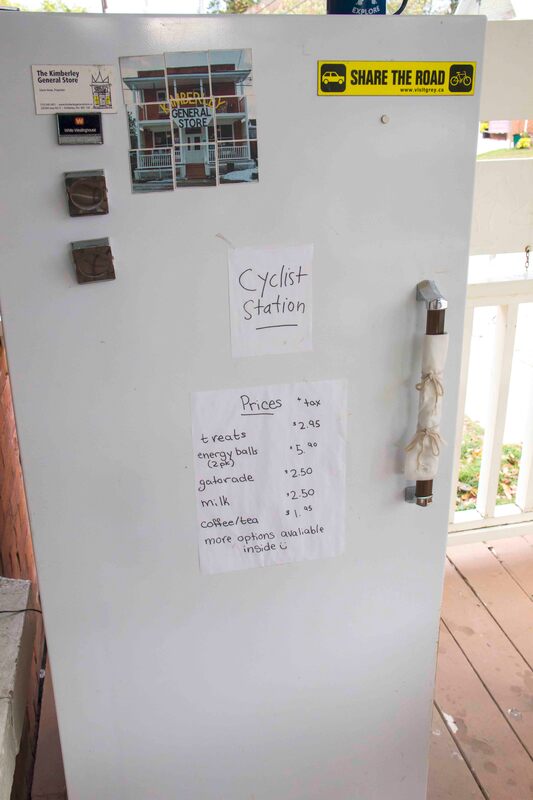 EXPLORE
The Kimberley
General Store
White-Westinghouse
KIMBERLEY
GENERAL
STORE
SHARE THE ROAD
www.visitgrey.ca
Cyclist
Station
Prices + tax
treats $2.95
energy balls $5.90
(2pk)
gatorade $2.50
milk $2.50
coffee/tea $1.95
more options avaliable
inside